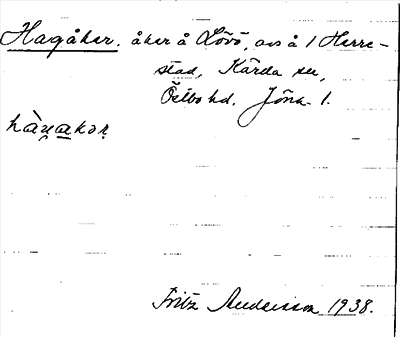 Hagåker. åker å Lövö, ovs å 1 Herre-
stad, Kärda sn,
Östbo hd. Jönk. l.
hàɣakər
Fritz Andersson 1938.